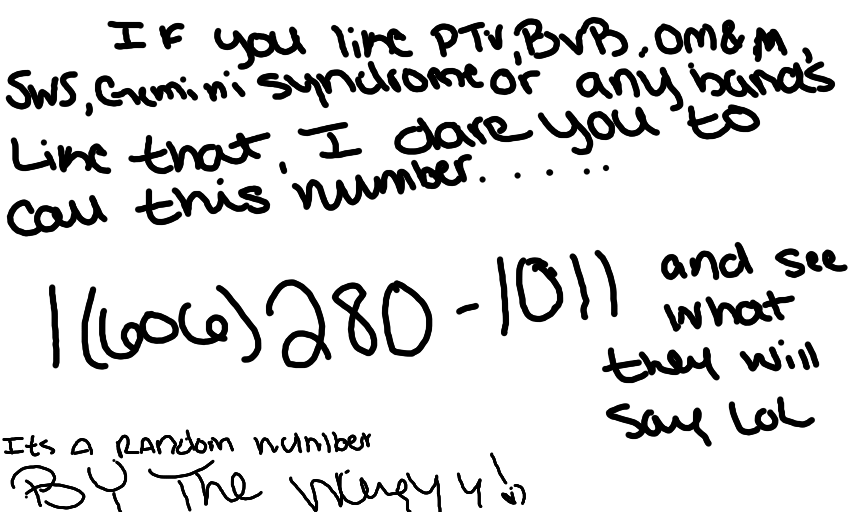 If you like PTV, BVB, OM&M,
SWS, Gemini syndrome or any bands
Like that, I dare you to
call this number. . . . . .
1(606)280-1011 and see
what
they will
say LOL
Its a RANdom number
BY The wayyy!:)